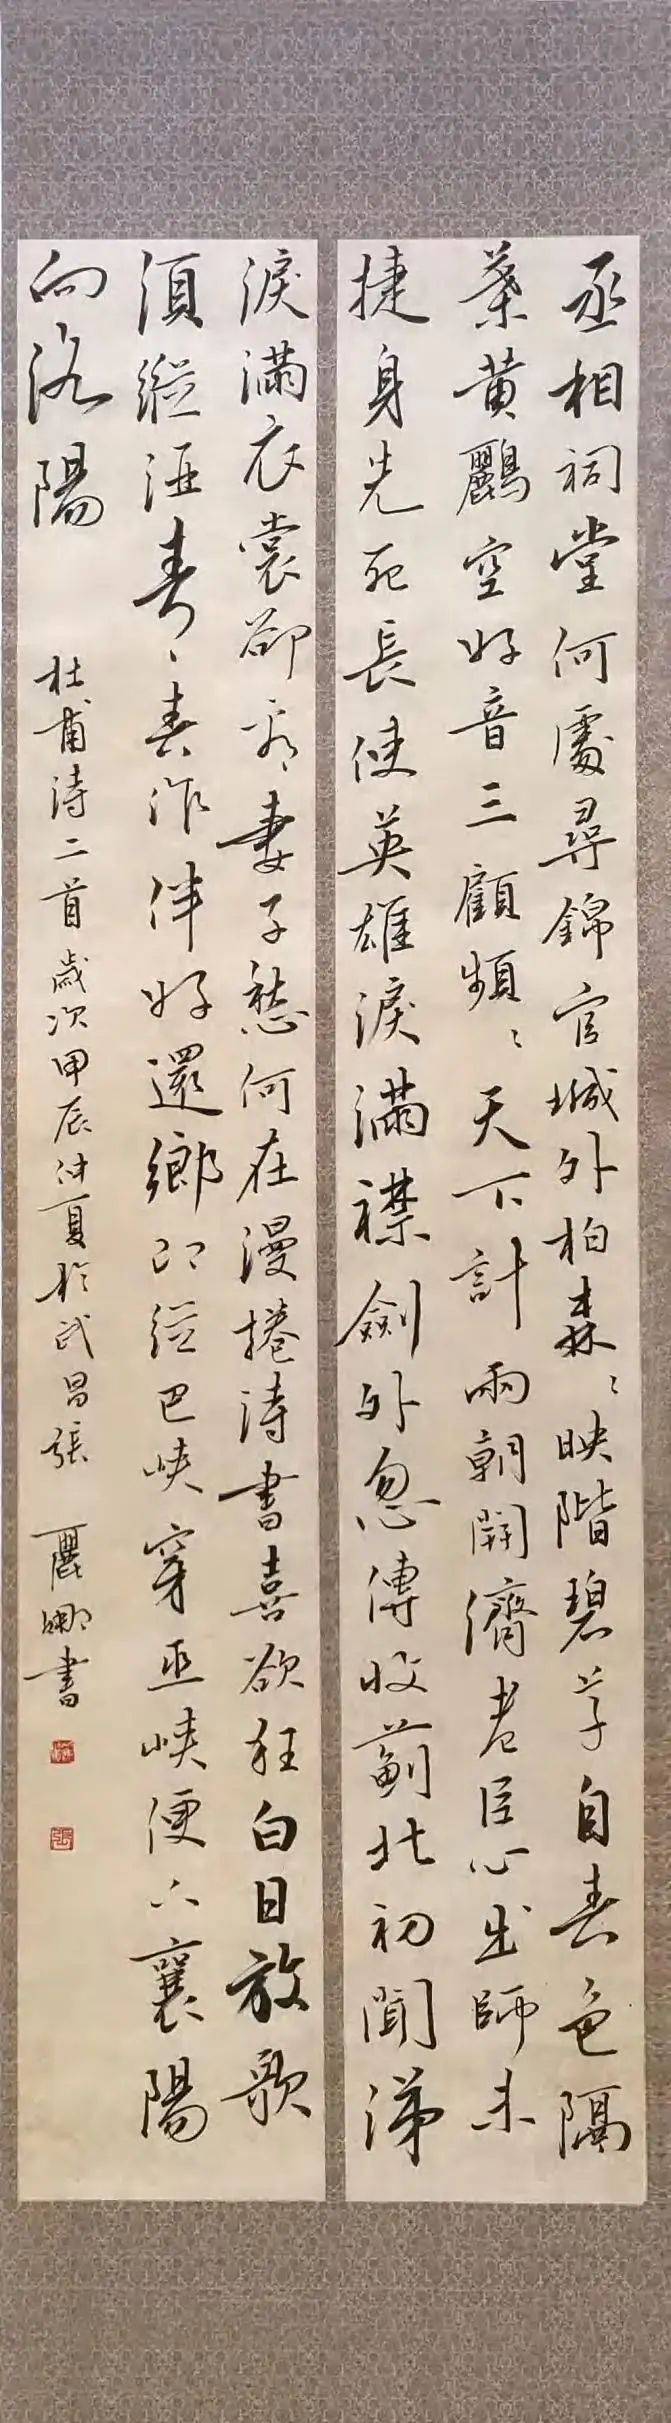 丞相祠堂何處尋錦官城外柏森〻映階碧草自春色隔
葉黃鸝空好音三顧頻〻天下計兩朝開濟老臣心出師未
捷身先死長使英雄淚滿襟劍外忽傳收薊北初聞涕
淚滿衣裳卻看妻子愁何在漫捲詩書喜欲狂白日放歌
須縱酒青春作伴好還鄉即從巴峽穿巫峽便下襄陽
向洛陽
杜甫詩二首歲次甲辰仲夏於武昌張麗娜書
張